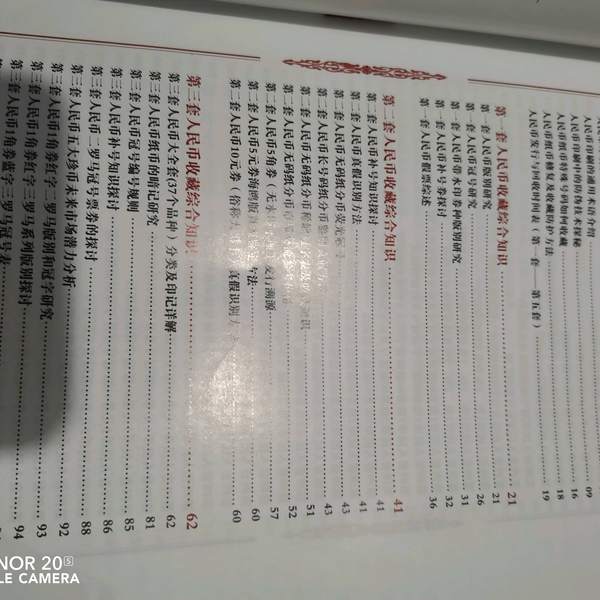 人民币印刷的通用术语介绍
人民币印刷中的防伪技术探秘 09
人民币纸币特殊号码如何收藏 16
人民币纸币修复及收藏防护方法 18
人民币发行与回收时间表（第一套 第五套） 19
第一套人民币收藏综合知识 21
第一套人民币版别研究 21
第一套人民币冠号研究 26
第一套人民币带水印券种版别研究 31
第一套人民币补号券探讨 32
第一套人民币假票综述 36
第二套人民币收藏综合知识 41
第二套人民币补号知识探讨 41
第二套人民币真假识别方法 41
第二套人民币无码纸分币荧光 43
第二套人民币长号码纸分币 43
第二套人民币无码纸分币 51
第二套人民币无码纸分币 52
第二套人民币5角券（无水 发行溯源 57
第二套人民币5元券海鸥版 方法 60
第二套人民币10元券（俗称 真假识别方 60
第三套人民币收藏综合知识 62
第三套人民币大全套(37个品种）分类及印记详解 62
第三套人民币纸币的暗记研究 81
第三套人民币冠号编号规则 85
第三套人民币补号知识探讨 86
第三套人民币二罗马冠号票券的探讨 88
第三套人民币五大珍币未来市场潜力分析 92
第三套人民币1角券红字二罗马版别和冠字研究 93
第三套人民币1角券红字三罗马系列版别探讨 94
人民币1角券蓝字三罗马冠号表
NOR 20S
LE CAMERA